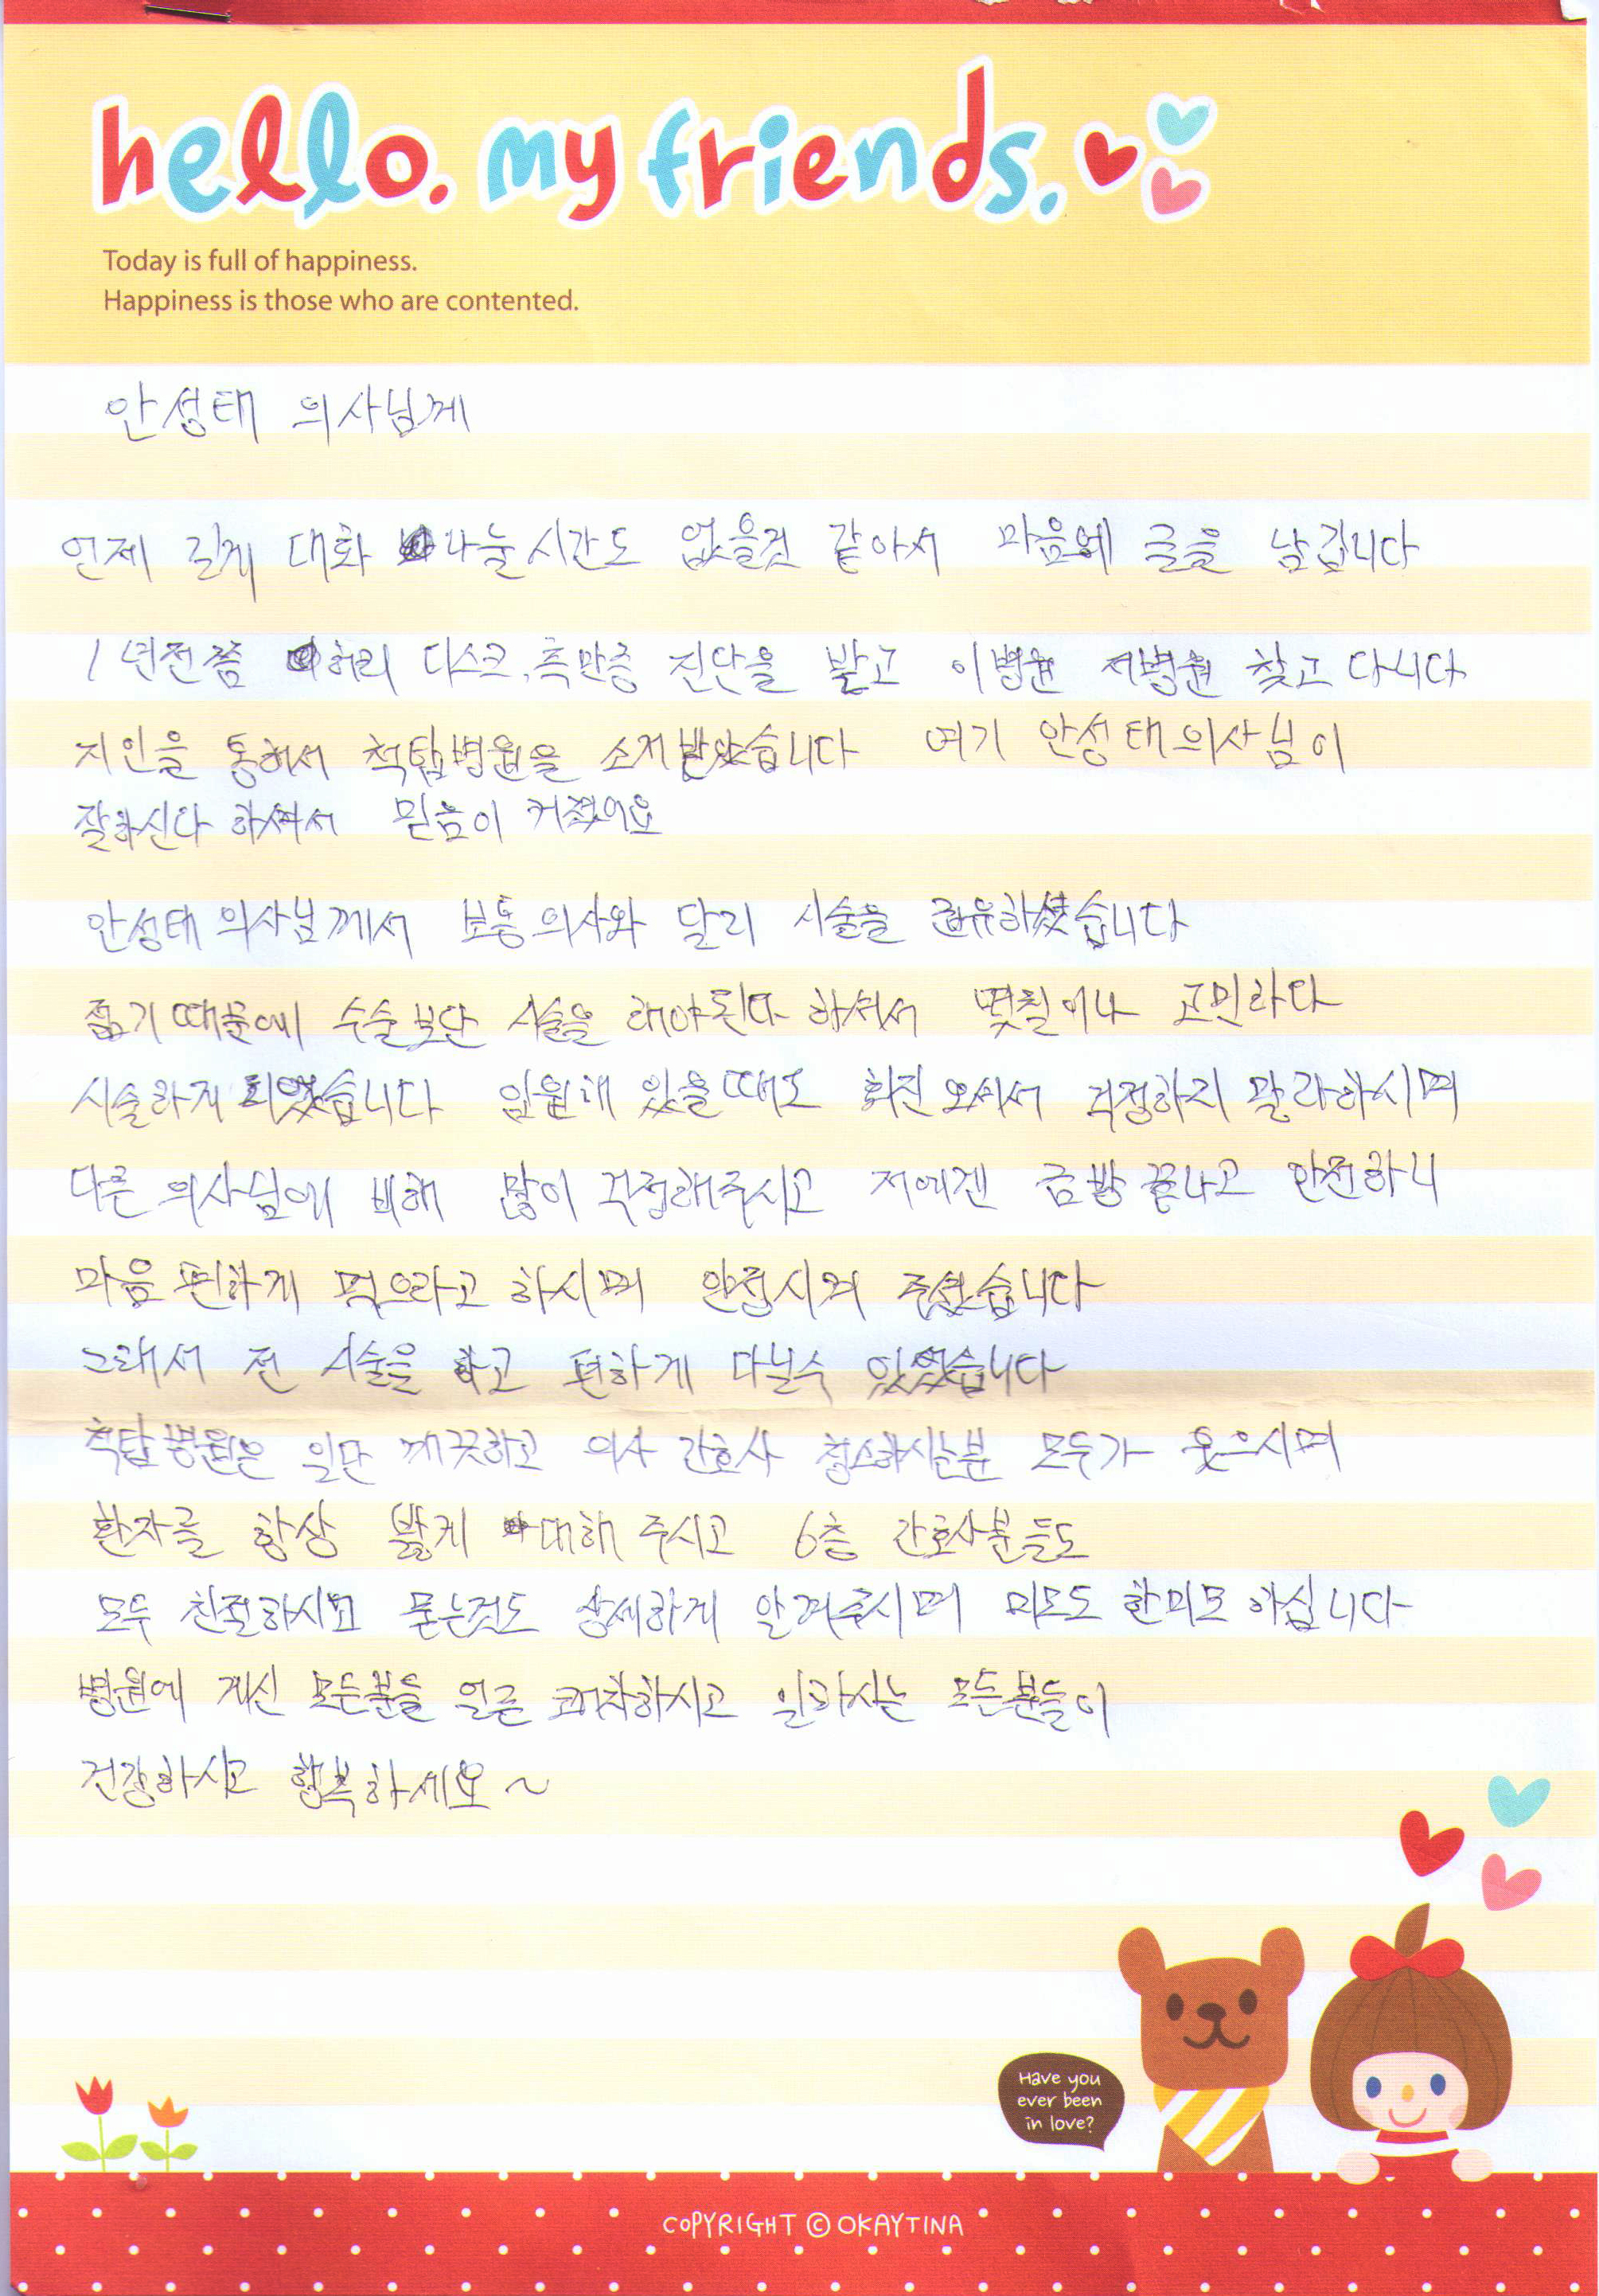 hello. my friends.
Today is full of happiness.
Happiness is those who are contented.
안성태 의사님께
언제 길게 대화 나눌시간도 없을것 같아서 마음에 글을 남깁니다
1년전쯤 허리 디스크, 측만증 진단을 받고 이병원 저병원 찾고 다니다
지인을 통해서 척탑병원을 소개받았습니다 여기 안성태의사님이
잘하신다 하셔서 믿음이 커졌어요
안성태 의사님께서 보통의사와 달리 시술을 권유하셨습니다
젊기 때문에 수술보단 시술을 해야된다 하셔서 몇칠이나 고민하다
시술하게 되었습니다 입원해 있을때도 회진오셔서 걱정하지 말라하시며
다른 의사님에 비해 많이 걱정해주시고 저에겐 금방 끝나고 안전하니
마음 편하게 먹으라고 하시며 안정시켜 주셨습니다
그래서 전 시술을 하고 편하게 다닐수 있었습니다
척탑병원은 일단 깨끗하고 의사 간호사 청소하시는분 모두가 웃으시며
환자를 항상 밝게 대해 주시고 6층 간호사분들도
모두 친절하시고 묻는것도 상세하게 알려주시며 미모도 한미모 하십니다
병원에 계신 모든분들 얼른 쾌차하시고 일하시는 모든분들이
건강하시고 행복하세요~
Have you
ever been
in love?
COPYRIGHT © OKAYTINA